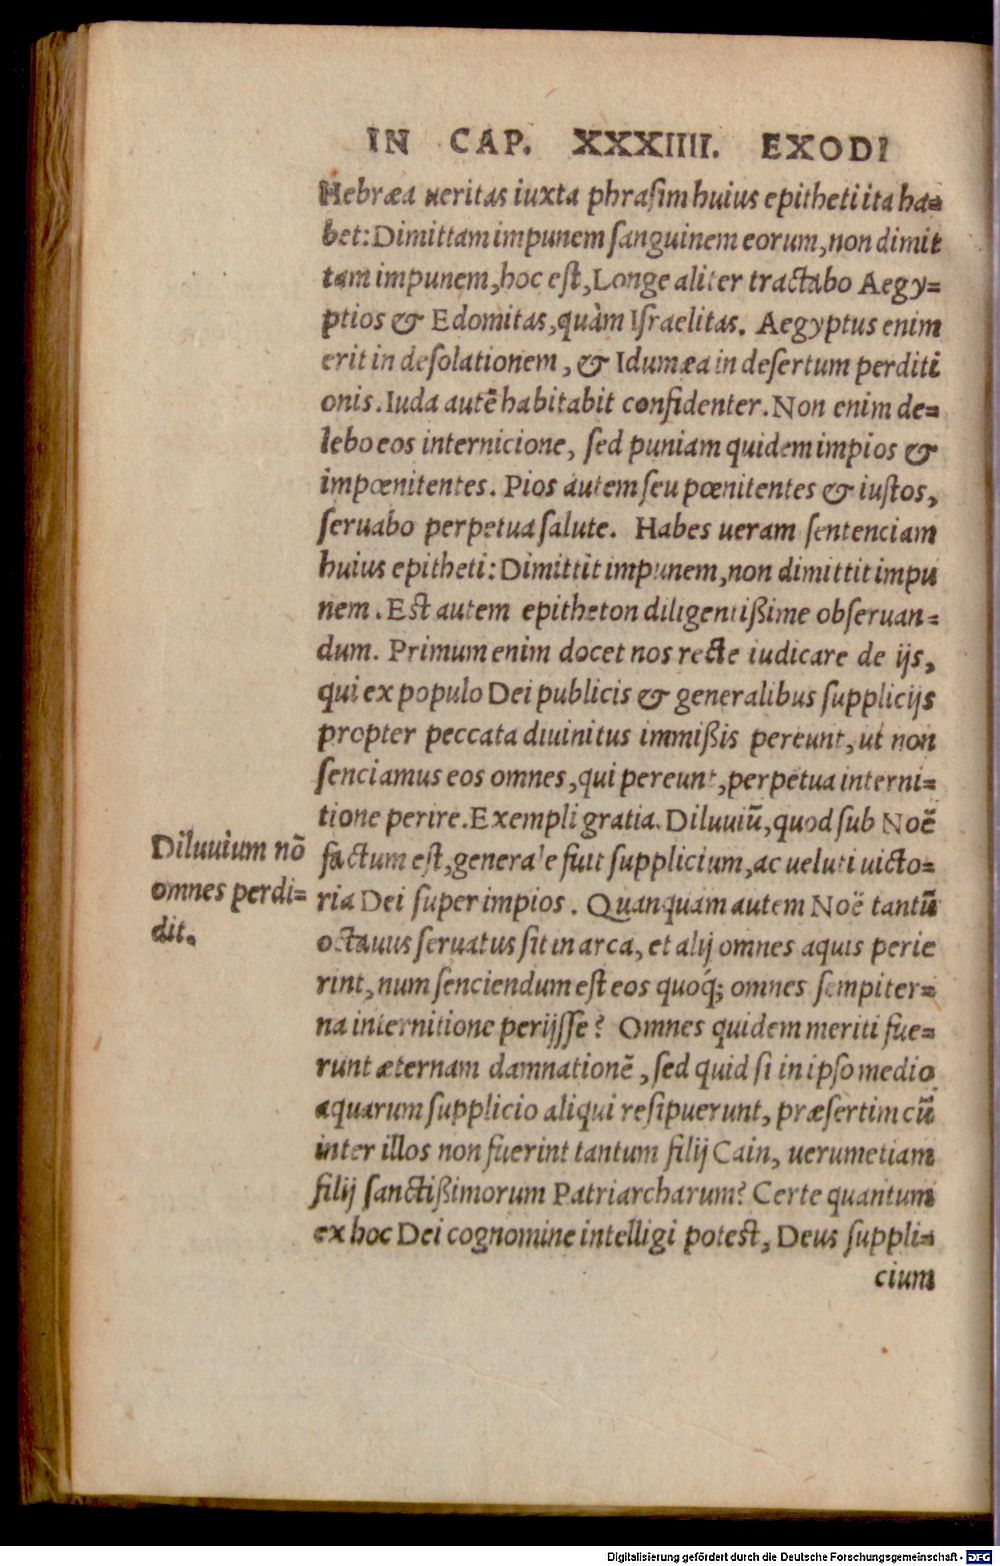 IN CAP. XXXIIII. EXODI
Hebræa ueritas iuxta phraſim huius epitheti ita ha=
bet: Dimittam impunem ſanguinem eorum, non dimit
tam impunem, hoc eſt, Longe aliter tractabo Aegy=
ptios & Edomitas, quàm Iſraelitas. Aegyptus enim
erit in deſolationem, & Idumæa in deſertum perditi
onis. Iuda autẽ habitabit confidenter. Non enim de=
lebo eos internicione, ſed puniam quidem impios &
impœnitentes. Pios autem ſeu pœnitentes & iuſtos,
ſeruabo perpetua ſalute. Habes ueram ſentenciam
huius epitheti: Dimittit impunem, non dimittit impu
nem. Eſt autem epitheton diligentißime obſeruan=
dum. Primum enim docet nos recte iudicare de ijs,
qui ex populo Dei publicis & generalibus ſupplicijs
propter peccata diuinitus immißis pereunt, ut non
ſenciamus eos omnes, qui pereunt, perpetua interni=
tione perire. Exempli gratia. Diluuiũ, quod ſub Noë
factum eſt, generale fuit ſupplicium, ac ueluti uicto=
ria Dei ſuper impios. Quanquam autem Noë tantũ
octauus ſeruatus ſit in arca, et alij omnes aquis perie
rint, num ſenciendum eſt eos quoq́; omnes ſempiter=
na internitione perijſſe? Omnes quidem meriti fue=
runt æternam damnationẽ, ſed quid ſi in ipſo medio
aquarum ſupplicio aliqui reſipuerunt, præſertim cũ
inter illos non fuerint tantum filij Cain, uerumetiam
filij ſanctißimorum Patriarcharum? Certe quantum
ex hoc Dei cognomine intelligi poteſt, Deus ſuppli=
cium
Diluuium nõ
omnes perdi=
dit.
Digitalisierung gefördert durch die Deutsche Forschungsgemeinschaft - DFG